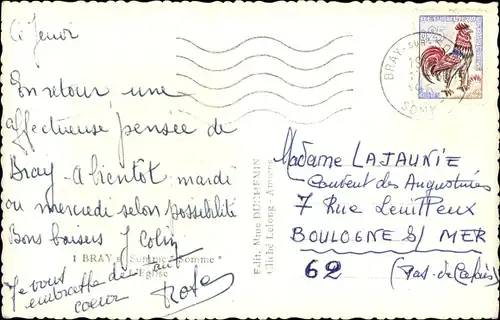 Ci Jeudi
En retour, une
affectueuse pensée de
Bray. A bientôt, mardi
ou mercredi selon possibilité
Bons baisers J Colin
1 BRAY s/ Somme "Somme"
L'Eglise
Je vous
embrasse de tout
coeur
Rose
Edit. Mme DUCHEMIN
Cliché Lelong - Amiens
BRAY-SUR-
SOMME
Madame LAJAUNIE
Couvent des Augustines
7 Rue Leuilleux
BOULOGNE S/ MER
62 (Pas-de-Calais)